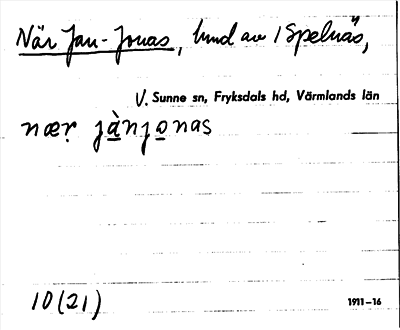 När Jan-Jonas, hmd av 1 Spelnäs,
V. Sunne sn, Fryksdals hd, Värmlands län
næṛ jànjo̲nas
10(21)
1911–16